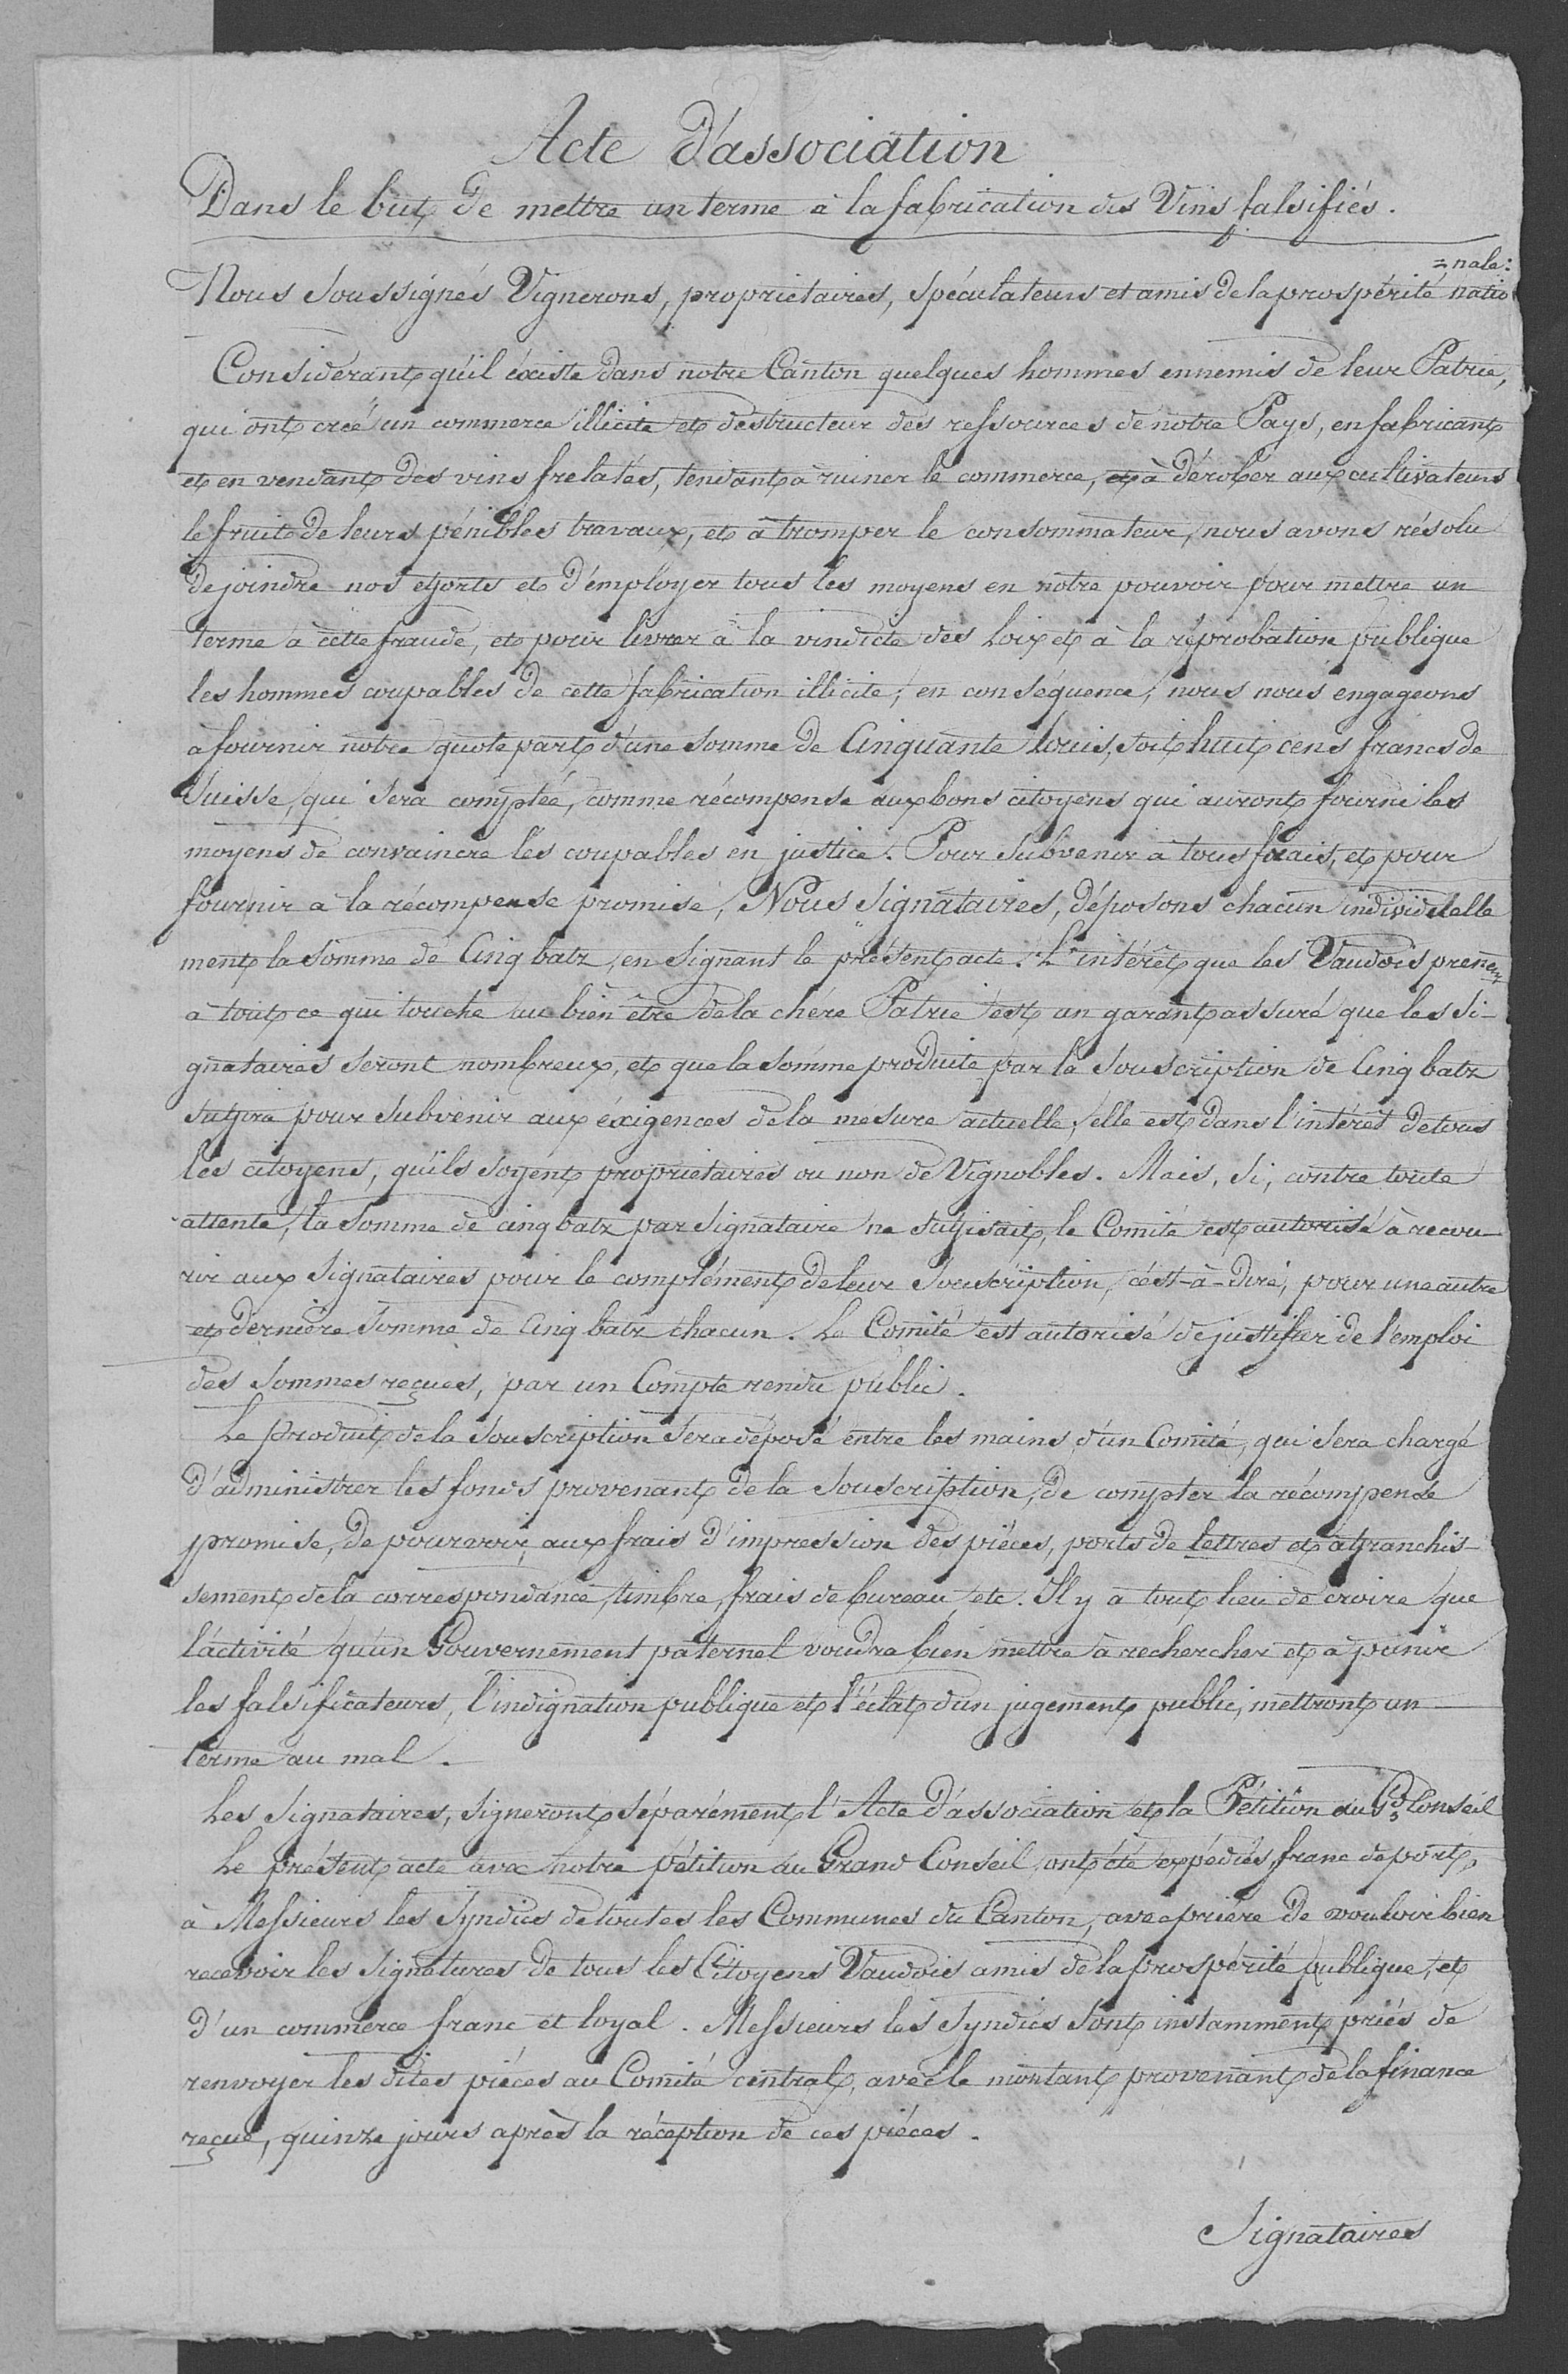 Acte d'association
Dans le but de mettre un terme à la fabrication des Vins falsifiés.
Nous Soussignés Vignerons, propriétaires, Spéculateurs et amis de la prospérité natio
=nale:
Considérant qu'il éxiste dans notre Canton quelques hommes ennemis de leur Patrie,
qui ont créé un commerce illicite et destructeur des ressources de notre Pays, en fabricant
et en vendant des vins frelatés, tendant à ruiner le commerce, et à dérober aux cultivateurs
le fruit de leurs pénibles travaux, et à tromper le consommateur, nous avons résolu
de joindre nos efforts et d'employer tous les moyens en notre pouvoir pour mettre un
terme à cette fraude, et pour livrer à la vindicte des Loix et à la réprobation publique
les hommes coupables de cette fabrication illicite; en conséquence, nous nous engageons
à fournir notre quote part d'une Somme de Cinquante Louis, soit huit cens francs de
Suisse, qui Sera comptée, comme récompense aux bons citoyens qui auront fourni les
moyens de convaincre les coupables en justice. Pour Subvenir à tous frais, et pour
fournir à la récompense promise, Nous Signataires, déposons chacun individuelle
ment la Somme de Cinq batz, en Signant le présent acte. L'intérêt que les Vaudois prenent
à tout ce qui touche au bien être de la chére Patrie est un garant assuré que les Si-
gnataires Seront nombreux, et que la Somme produite par la Souscription de Cinq batz
Suffira pour Subvenir aux éxigences de la mesure actuelle, elle est dans l'intérêt de tous
les citoyens, qu'ils soyent propriétaires ou non de Vignobles. Mais, Si, contre toute
attente, la Somme de cinq batz par Signataire ne Suffisait, le Comité est autorisé à recou-
rir aux Signataires pour le complément de leur Souscription, c'est-à-dire, pour une autre
et dernière Somme de Cinq batz chacun. Le Comité est autorisé de justifier de l'emploi
des Sommes reçues, par un Compte rendu public.
Le produit de la Souscription Sera déposé entre les mains d'un Comité, qui Sera chargé
d'administrer les fonds provenant de la Souscription, de compter la récompense
promise, de pourvoir aux frais d'impression des piéces, ports de lettres et affranchis-
sement de la correspondance, timbre, frais de bureau, etc. Il y a tout lieu de croire que
l'activité qu'un Gouvernement paternel voudra bien mettre à rechercher et à punir
les falsificateurs, l'indignation publique et l'éclat d'un jugement public, mettront un
terme au mal.
Les Signataires, Signeront Séparément l'Acte d'association et la Pétition au Gd Conseil
Le présent acte avec notre pétition au Grand Conseil, ont été expédiés, franc de port,
à Messieurs les Syndics de toutes les Communes du Canton, avec prière de vouloir bien
recevoir les Signatures de tous les Citoyens Vaudois amis de la prospérité publique, et
d'un commerce franc et loyal. Messieurs les Syndics Sont instamment priés de
renvoyer les dites piéces au Comité central, avec le montant provenant de la finance
reçue, quinze jours après la réception de ces piéces.
Signataires